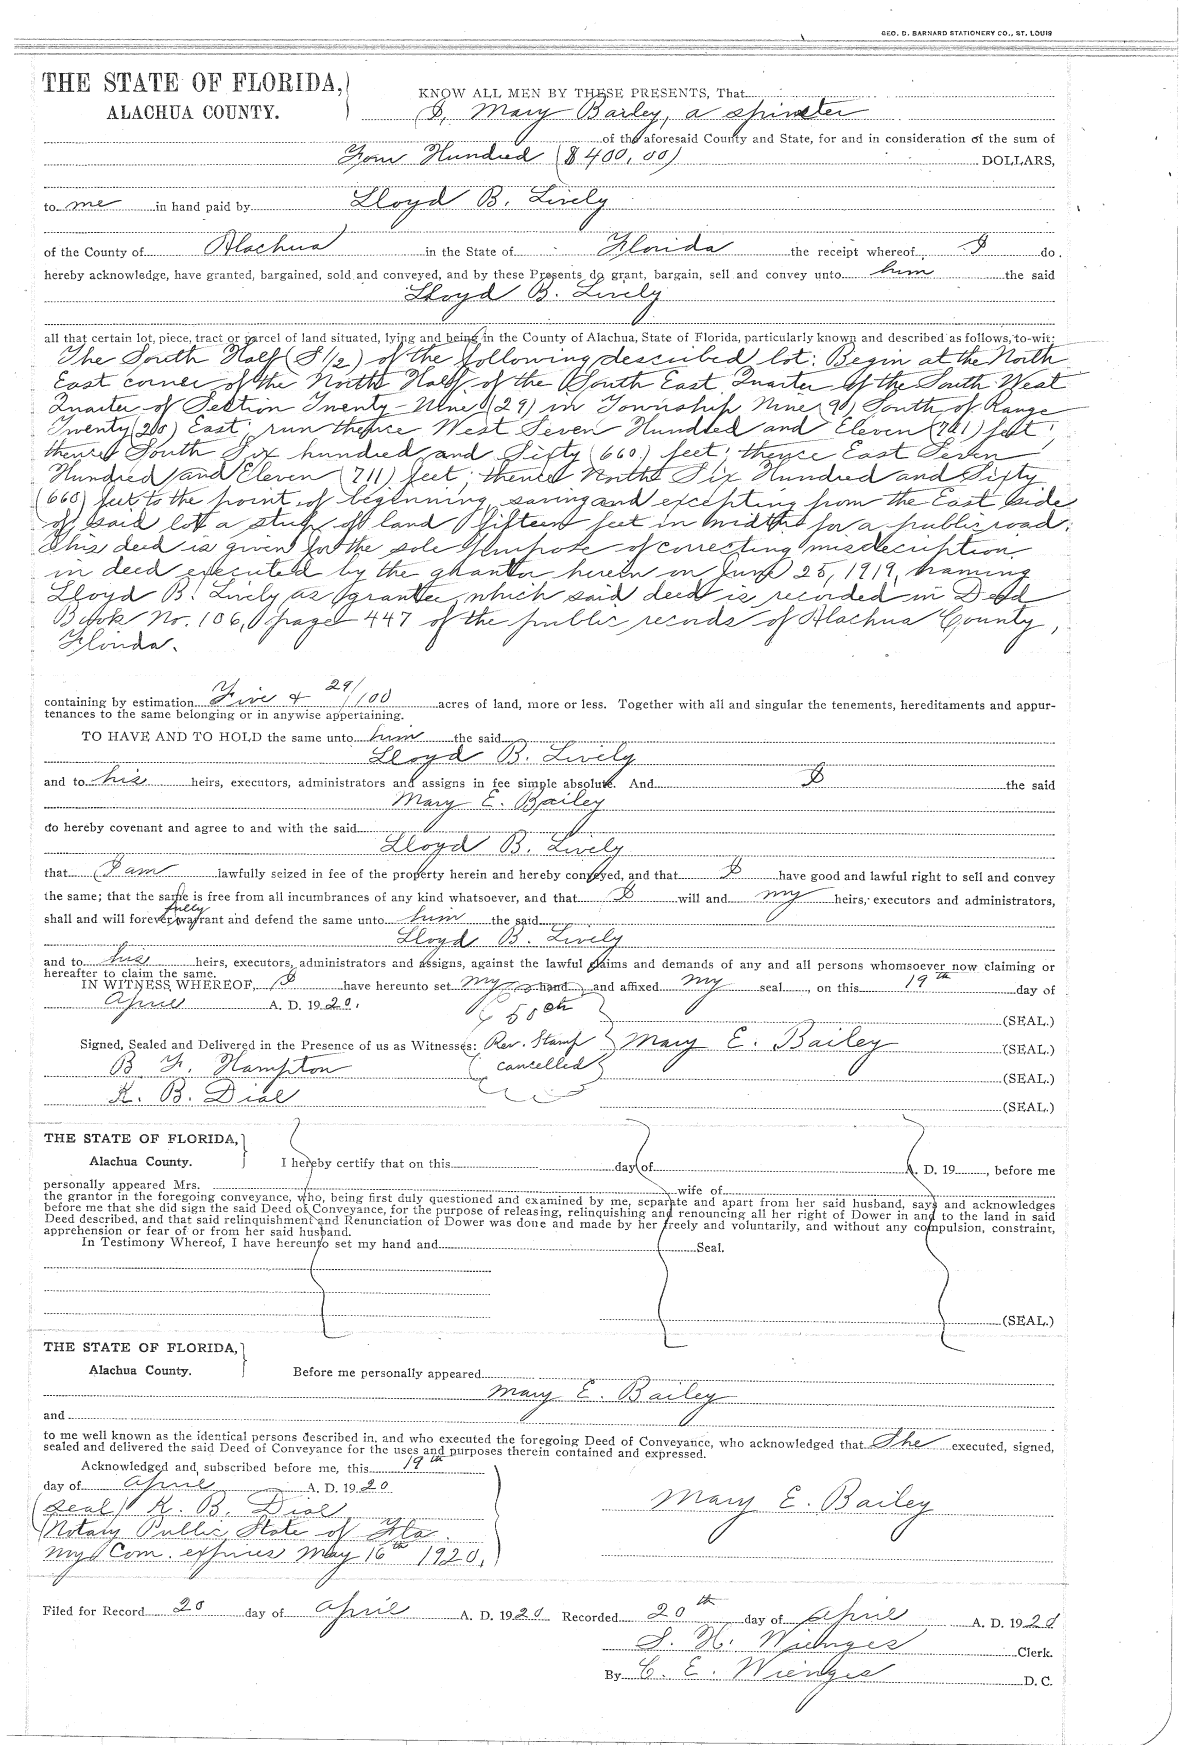 GEO. D. BARNARD STATIONERY CO., ST. LOUIS
THE STATE OF FLORIDA,
ALACHUA COUNTY.
KNOW ALL MEN BY THESE PRESENTS, That
I, Mary Bailey, a spinster
of the aforesaid County and State, for and in consideration of the sum of
Four Hundred ($400.00) DOLLARS,
to me in hand paid by Lloyd B. Lively
of the County of Alachua in the State of Florida the receipt whereof I do
hereby acknowledge, have granted, bargained, sold and conveyed, and by these Presents do grant, bargain, sell and convey unto him the said
Lloyd B. Lively
all that certain lot, piece, tract or parcel of land situated, lying and being in the County of Alachua, State of Florida, particularly known and described as follows, to-wit:
The South Half (S 1/2) of the following described lot: Begin at the North
East corner of the North Half of the South East Quarter of the South West
Quarter of Section Twenty-Nine (29) in Township Nine (9) South of Range
Twenty (20) East; run thence West Seven Hundred and Eleven (711) feet;
thence South Six hundred and Sixty (660) feet; thence East Seven
Hundred and Eleven (711) feet; thence North Six Hundred and Sixty
(660) feet to the point of beginning, saving and excepting from the East side
of said lot a strip of land fifteen feet in width for a public road.
This deed is given for the sole purpose of correcting misdecription
in deed executed by the grantor herein on June 25, 1919, naming
Lloyd B. Lively as grantee, which said deed is recorded in Deed
Book No. 106, page 447 of the public records of Alachua County,
Florida.
containing by estimation Five & 29/100 acres of land, more or less. Together with all and singular the tenements, hereditaments and appur-
tenances to the same belonging or in anywise appertaining.
TO HAVE AND TO HOLD the same unto him the said
Lloyd B. Lively
and to his heirs, executors, administrators and assigns in fee simple absolute. And I the said
Mary E. Bailey
do hereby covenant and agree to and with the said
Lloyd B. Lively
that I am lawfully seized in fee of the property herein and hereby conveyed, and that I have good and lawful right to sell and convey
the same; that the same is free from all incumbrances of any kind whatsoever, and that I will and my heirs, executors and administrators,
shall and will forever fully warrant and defend the same unto him the said
Lloyd B. Lively
and to his heirs, executors, administrators and assigns, against the lawful claims and demands of any and all persons whomsoever now claiming or
hereafter to claim the same.
IN WITNESS WHEREOF, I have hereunto set my hand and affixed my seal, on this 19th day of
April A. D. 1920.
50 cts (SEAL.)
Signed, Sealed and Delivered in the Presence of us as Witnesses: Rev. Stamp Mary E. Bailey (SEAL.)
B. F. Hampton cancelled (SEAL.)
K. B. Dial (SEAL.)
THE STATE OF FLORIDA,
Alachua County.
I hereby certify that on this day of A. D. 19 , before me
personally appeared Mrs. wife of
the grantor in the foregoing conveyance, who, being first duly questioned and examined by me, separate and apart from her said husband, says and acknowledges
before me that she did sign the said Deed of Conveyance, for the purpose of releasing, relinquishing and renouncing all her right of Dower in and to the land in said
Deed described, and that said relinquishment and Renunciation of Dower was done and made by her freely and voluntarily, and without any compulsion, constraint,
apprehension or fear of or from her said husband.
In Testimony Whereof, I have hereunto set my hand and Seal.
(SEAL.)
THE STATE OF FLORIDA,
Alachua County.
Before me personally appeared
Mary E. Bailey
and
to me well known as the identical persons described in, and who executed the foregoing Deed of Conveyance, who acknowledged that She executed, signed,
sealed and delivered the said Deed of Conveyance for the uses and purposes therein contained and expressed.
Acknowledged and subscribed before me, this 19th
day of April A. D. 1920
(seal) K. B. Dial
Mary E. Bailey
Notary Public State of Fla.
my Com. expires May 16th 1920.
Filed for Record 20 day of April A. D. 1920 Recorded 20th day of April A. D. 1920
S. H. Wienges Clerk.
By C. E. Wienges D. C.